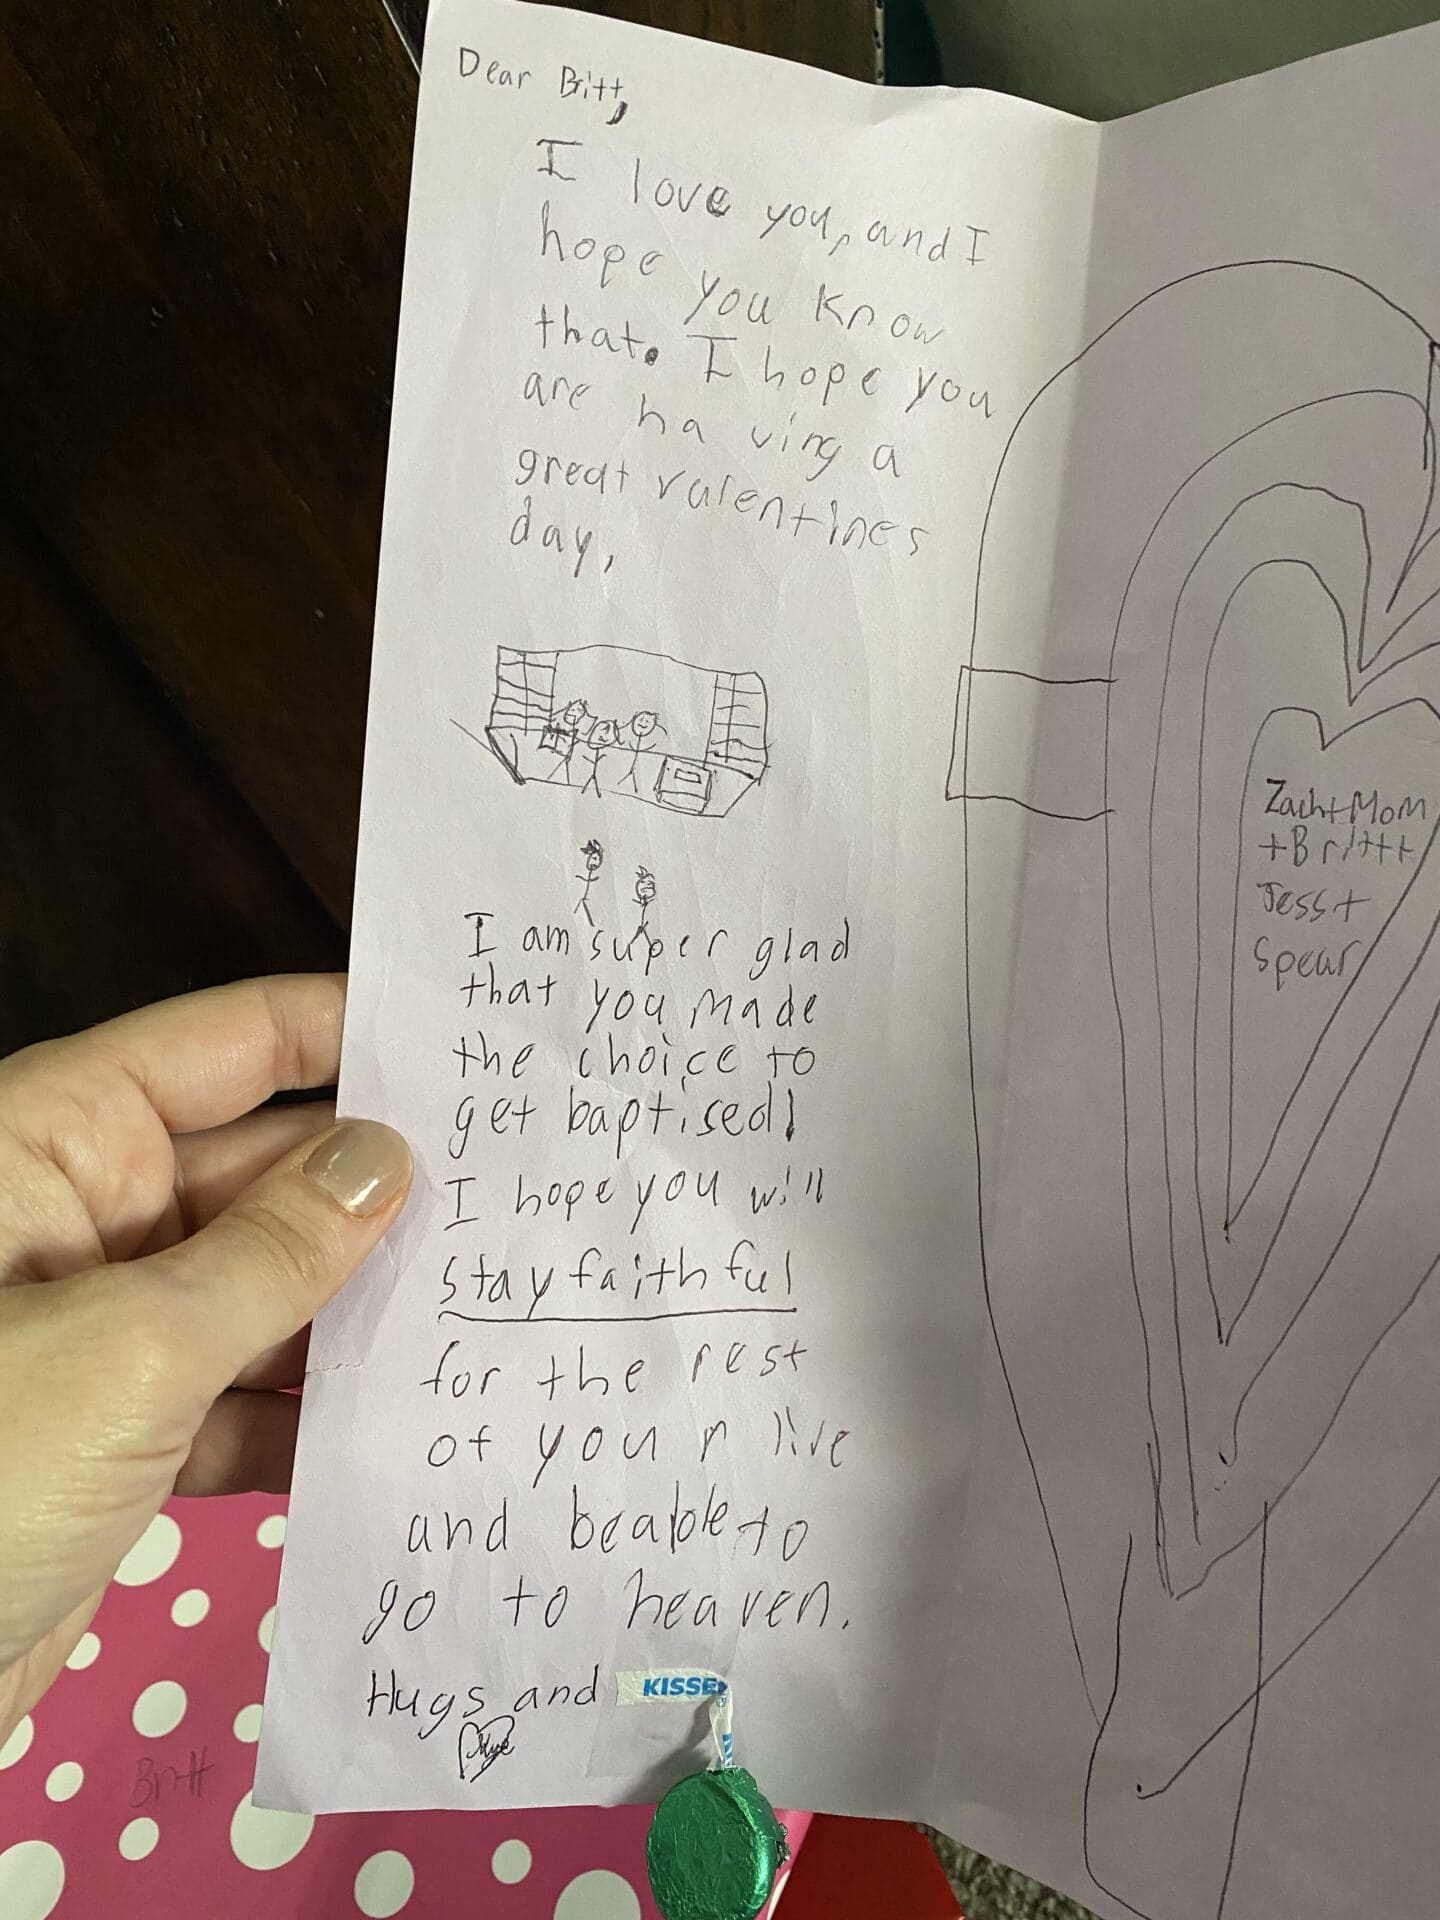 Dear Britt,
I love you, and I
hope you know
that. I hope you
are having a
great valentines
day,
I am super glad
that you made
the choice to
get baptised!
I hope you will
stay faithful
for the rest
of your live
and beable to
go to heaven.
Hugs and KISSES
Zach+Mom
+Britt+
Jess+
Spear
Britt